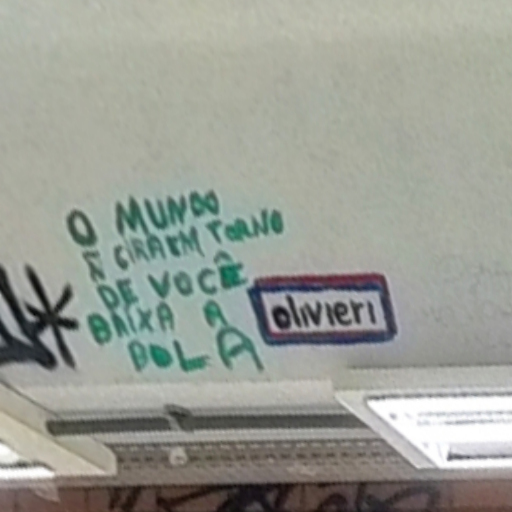 O MUNDO
Ñ GIRA EM TORNO
DE VOCÊ
BAIXA A
BOLA
olivieri